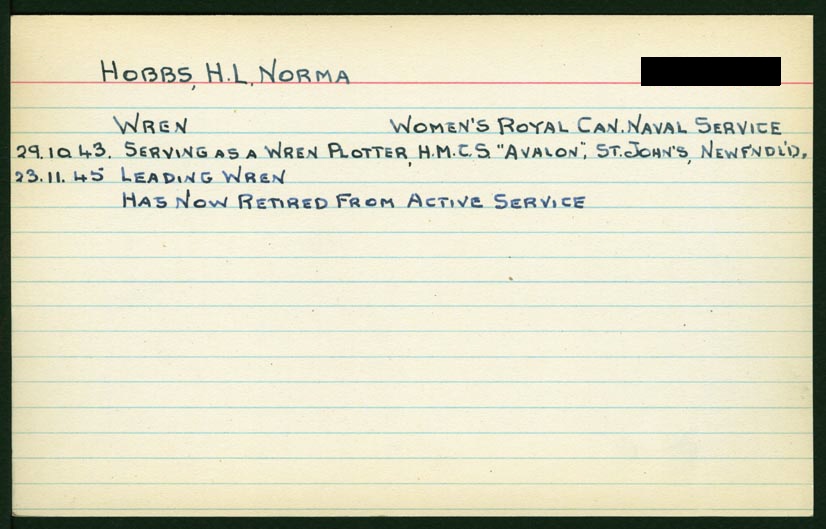 HOBBS, H.L. NORMA
WREN WOMEN'S ROYAL CAN. NAVAL SERVICE
29.10.43. SERVING AS A WREN PLOTTER, H.M.C.S. "AVALON", ST. JOHN'S, NEWFNDL'D.
23.11.45 LEADING WREN
HAS NOW RETIRED FROM ACTIVE SERVICE